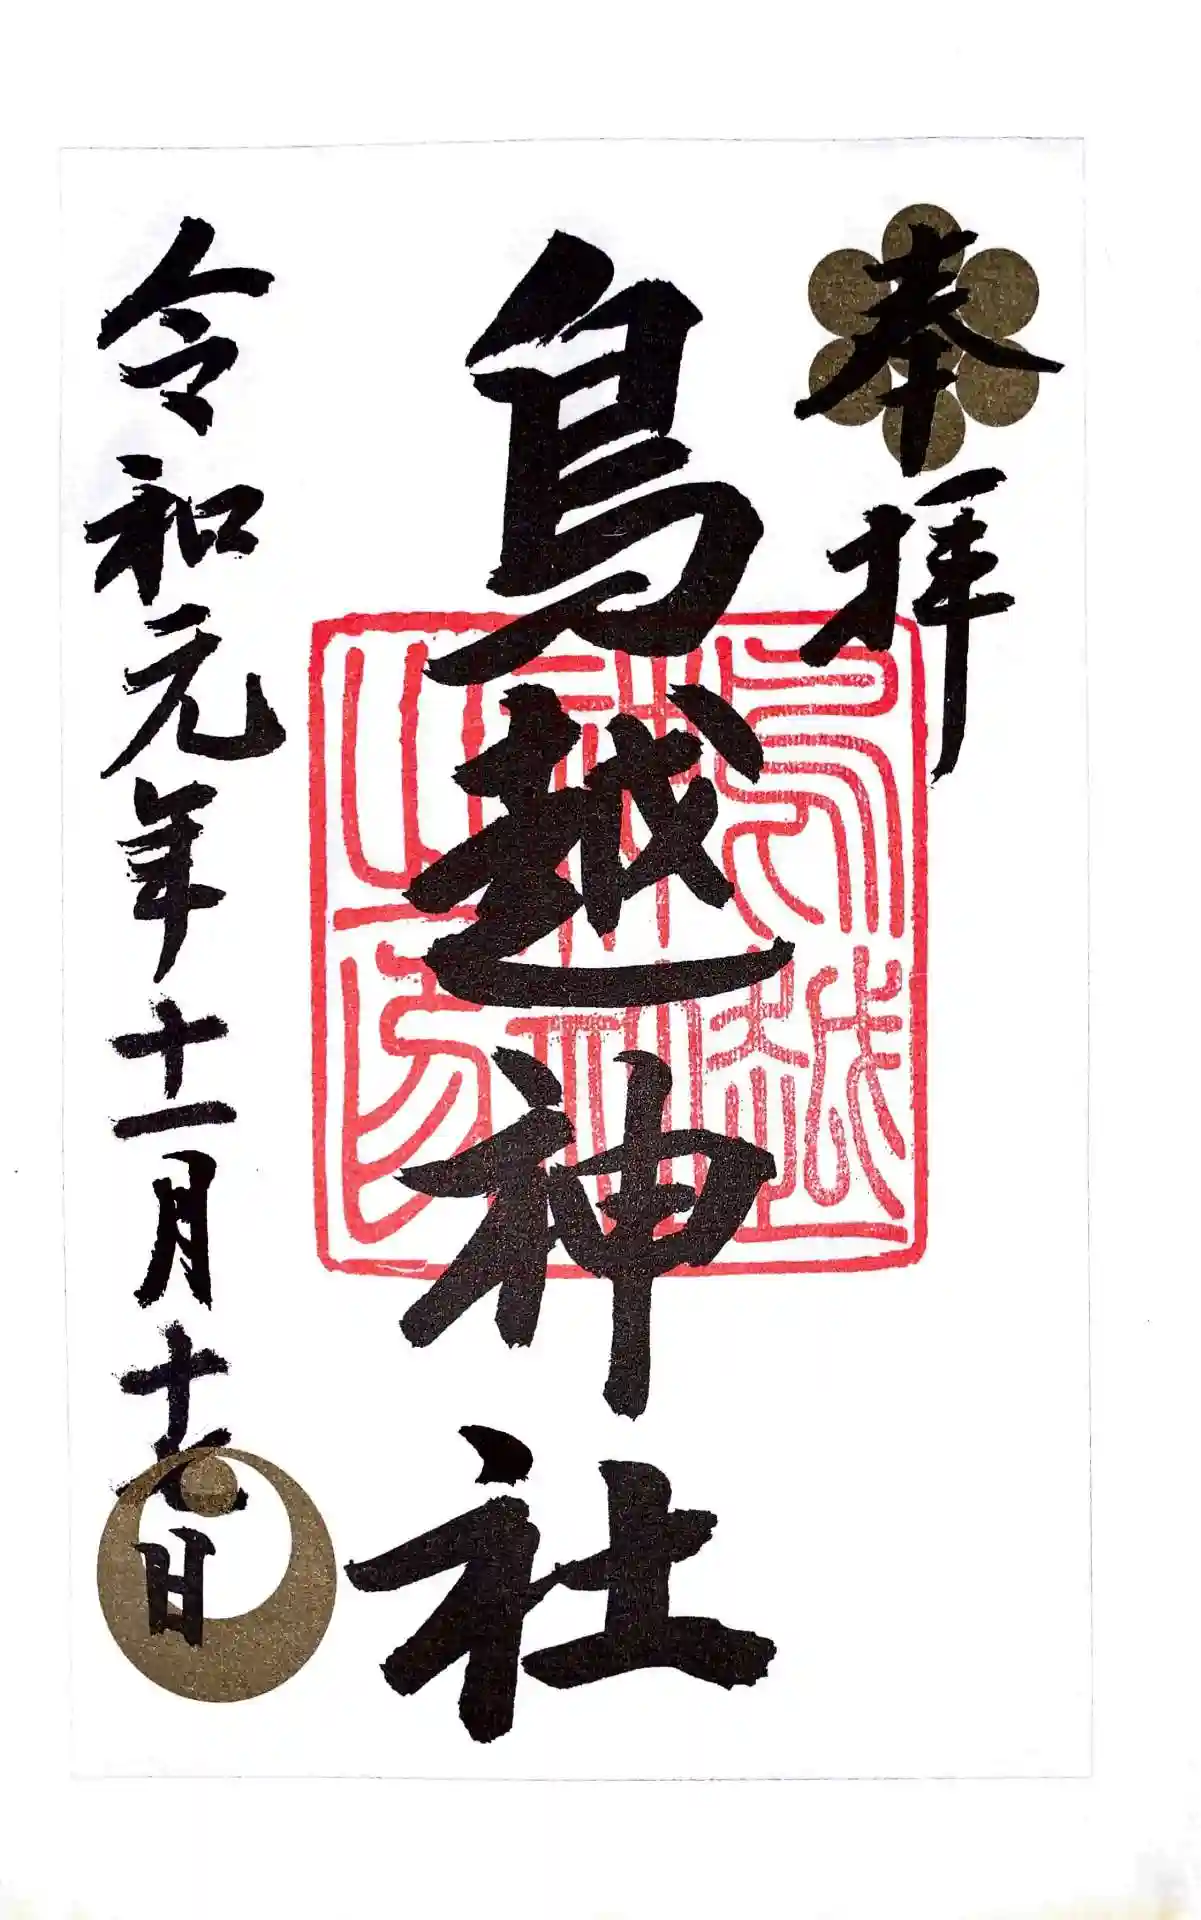 奉拝
鳥越神社
令和元年十一月十七日
鳥越
神社
之印